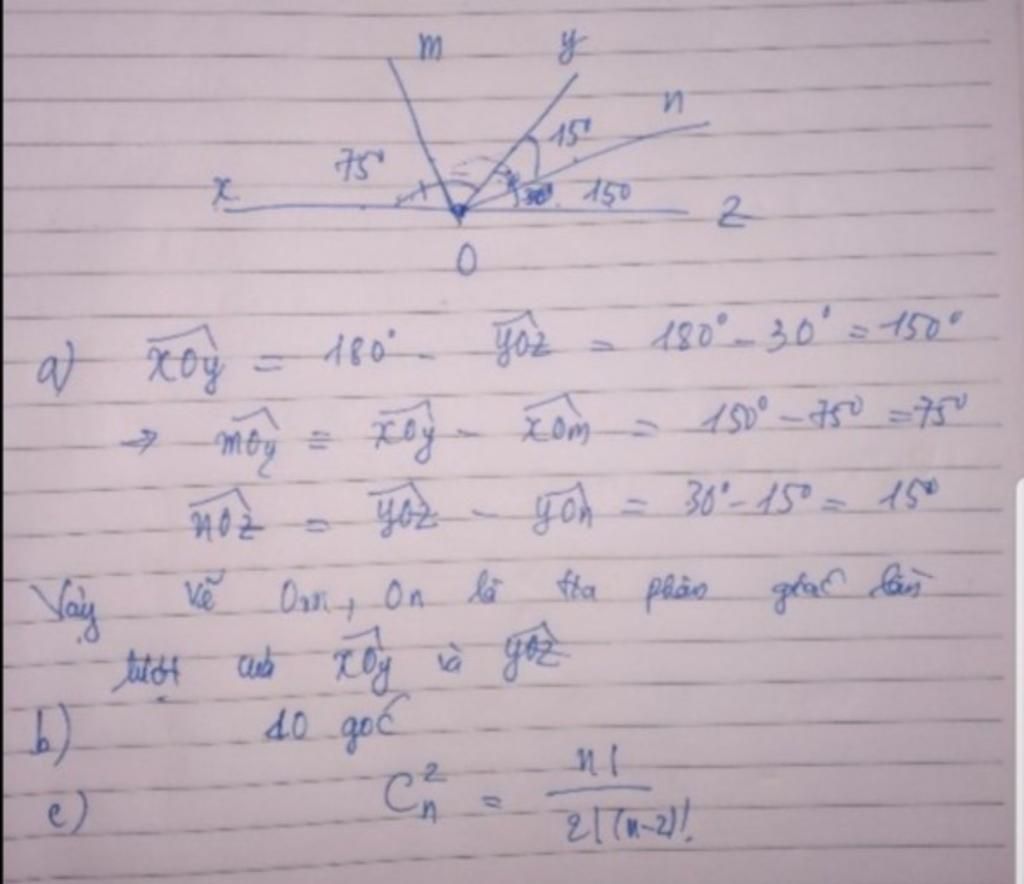 m y
n
75° 15°
x 150 z
O
a) xOy = 180° - yOz = 180° - 30° = 150°
=> mOy = xOy - xOm = 150° - 75° = 75°
nOz = yOz - yOn = 30° - 15° = 15°
Vậy vẽ Om, On là tia phân giác lần
lượt của xOy và yOz
b) 10 góc
c) C²ₙ = n! / 2!(n-2)!